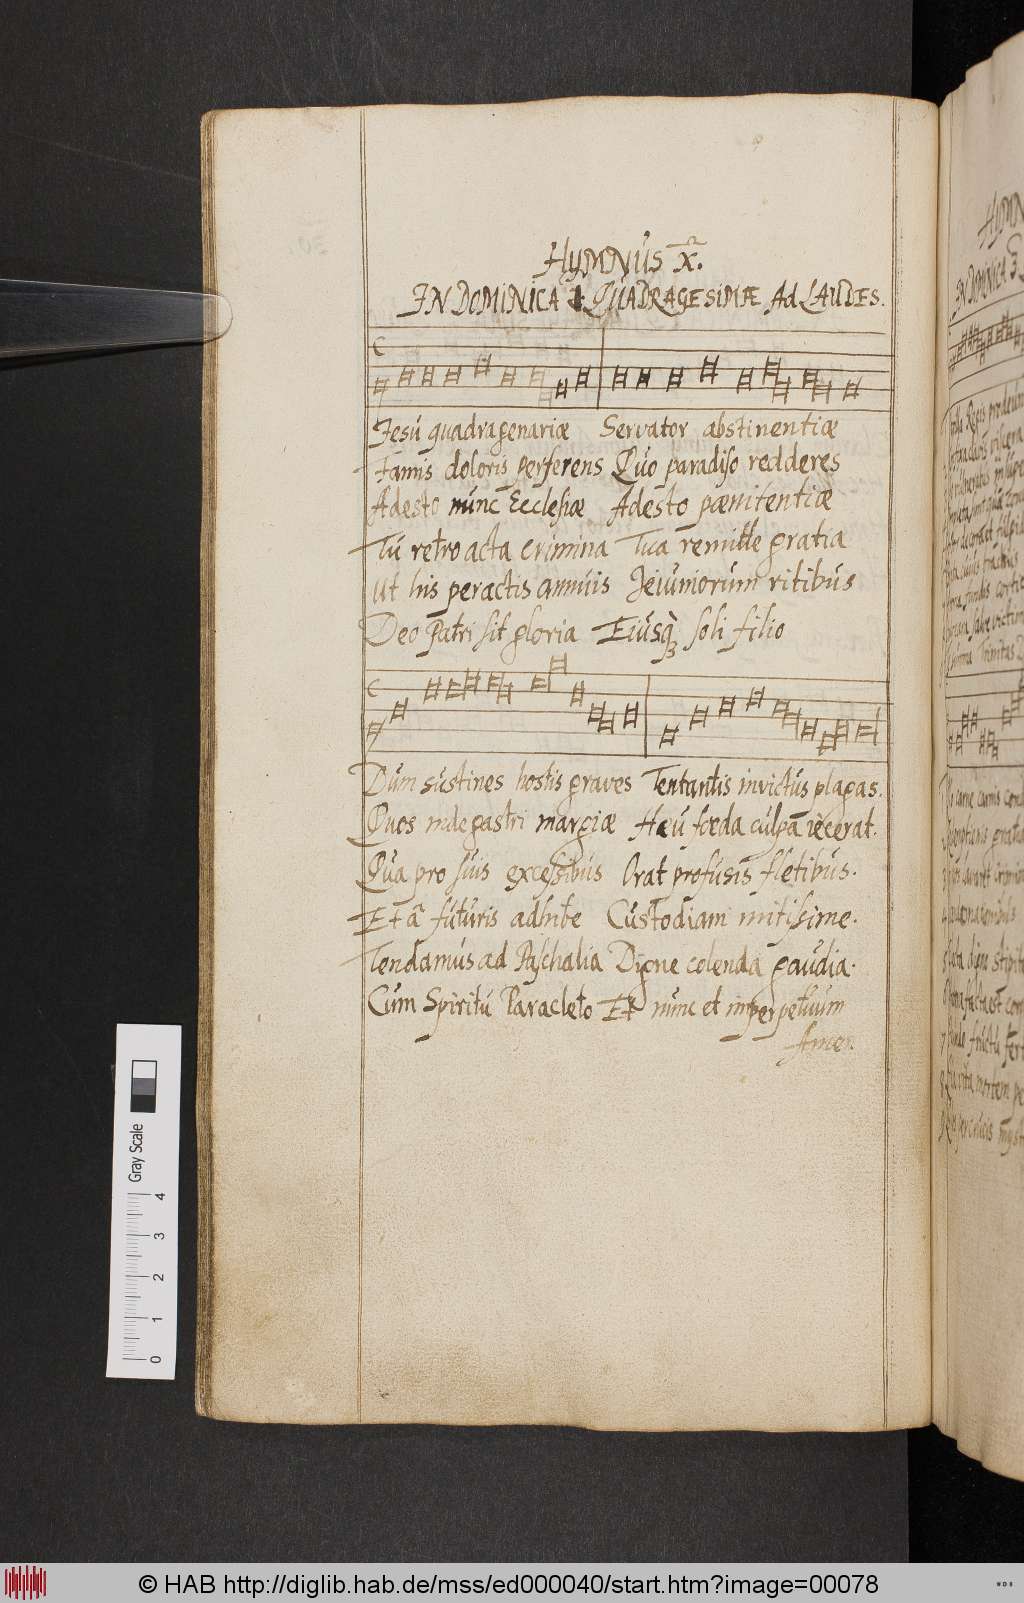 HYMNUS X.
IN DOMINICA 1. QUADRAGESIMÆ Ad LAUDES.
Jesu quadragenariæ Servator abstinentiæ
Famis doloris perferens Quo paradiso redderes
Adesto nunc Ecclesiæ Adesto pænitentiæ
Tu retro acta crimina Tua remitte gratia
Ut his peractis annuis Jeiuniorum ritibus
Deo Patri sit gloria Eiusq3 soli filio
Dum sustines hostis graves Tentantis invictus plagas.
Quos inde gastri margiæ Heu fœda culpa iecerat.
Qua pro suis excessibus Orat profusis fletibus.
Et â futuris adhibe Custodiam mitissime.
Tendamus ad Paschalia Digne colenda gaudia.
Cum Spiritu Paracleto Et nunc et inperpetuum
Amen.
HYMN
IN DOMINICA 3
Gray Scale
4
3
2
1
0
© HAB http://diglib.hab.de/mss/ed000040/start.htm?image=00078